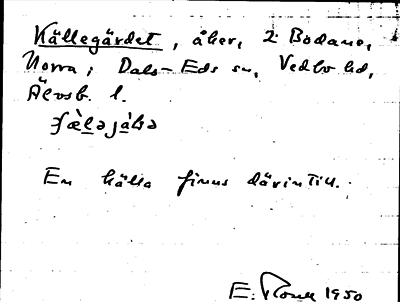 Källegärdet, åker, 2 Bodane,
Norra; Dals-Eds sn, Vedbo hd,
Älvsb. l.
En källa finns därintill.
E. 1950